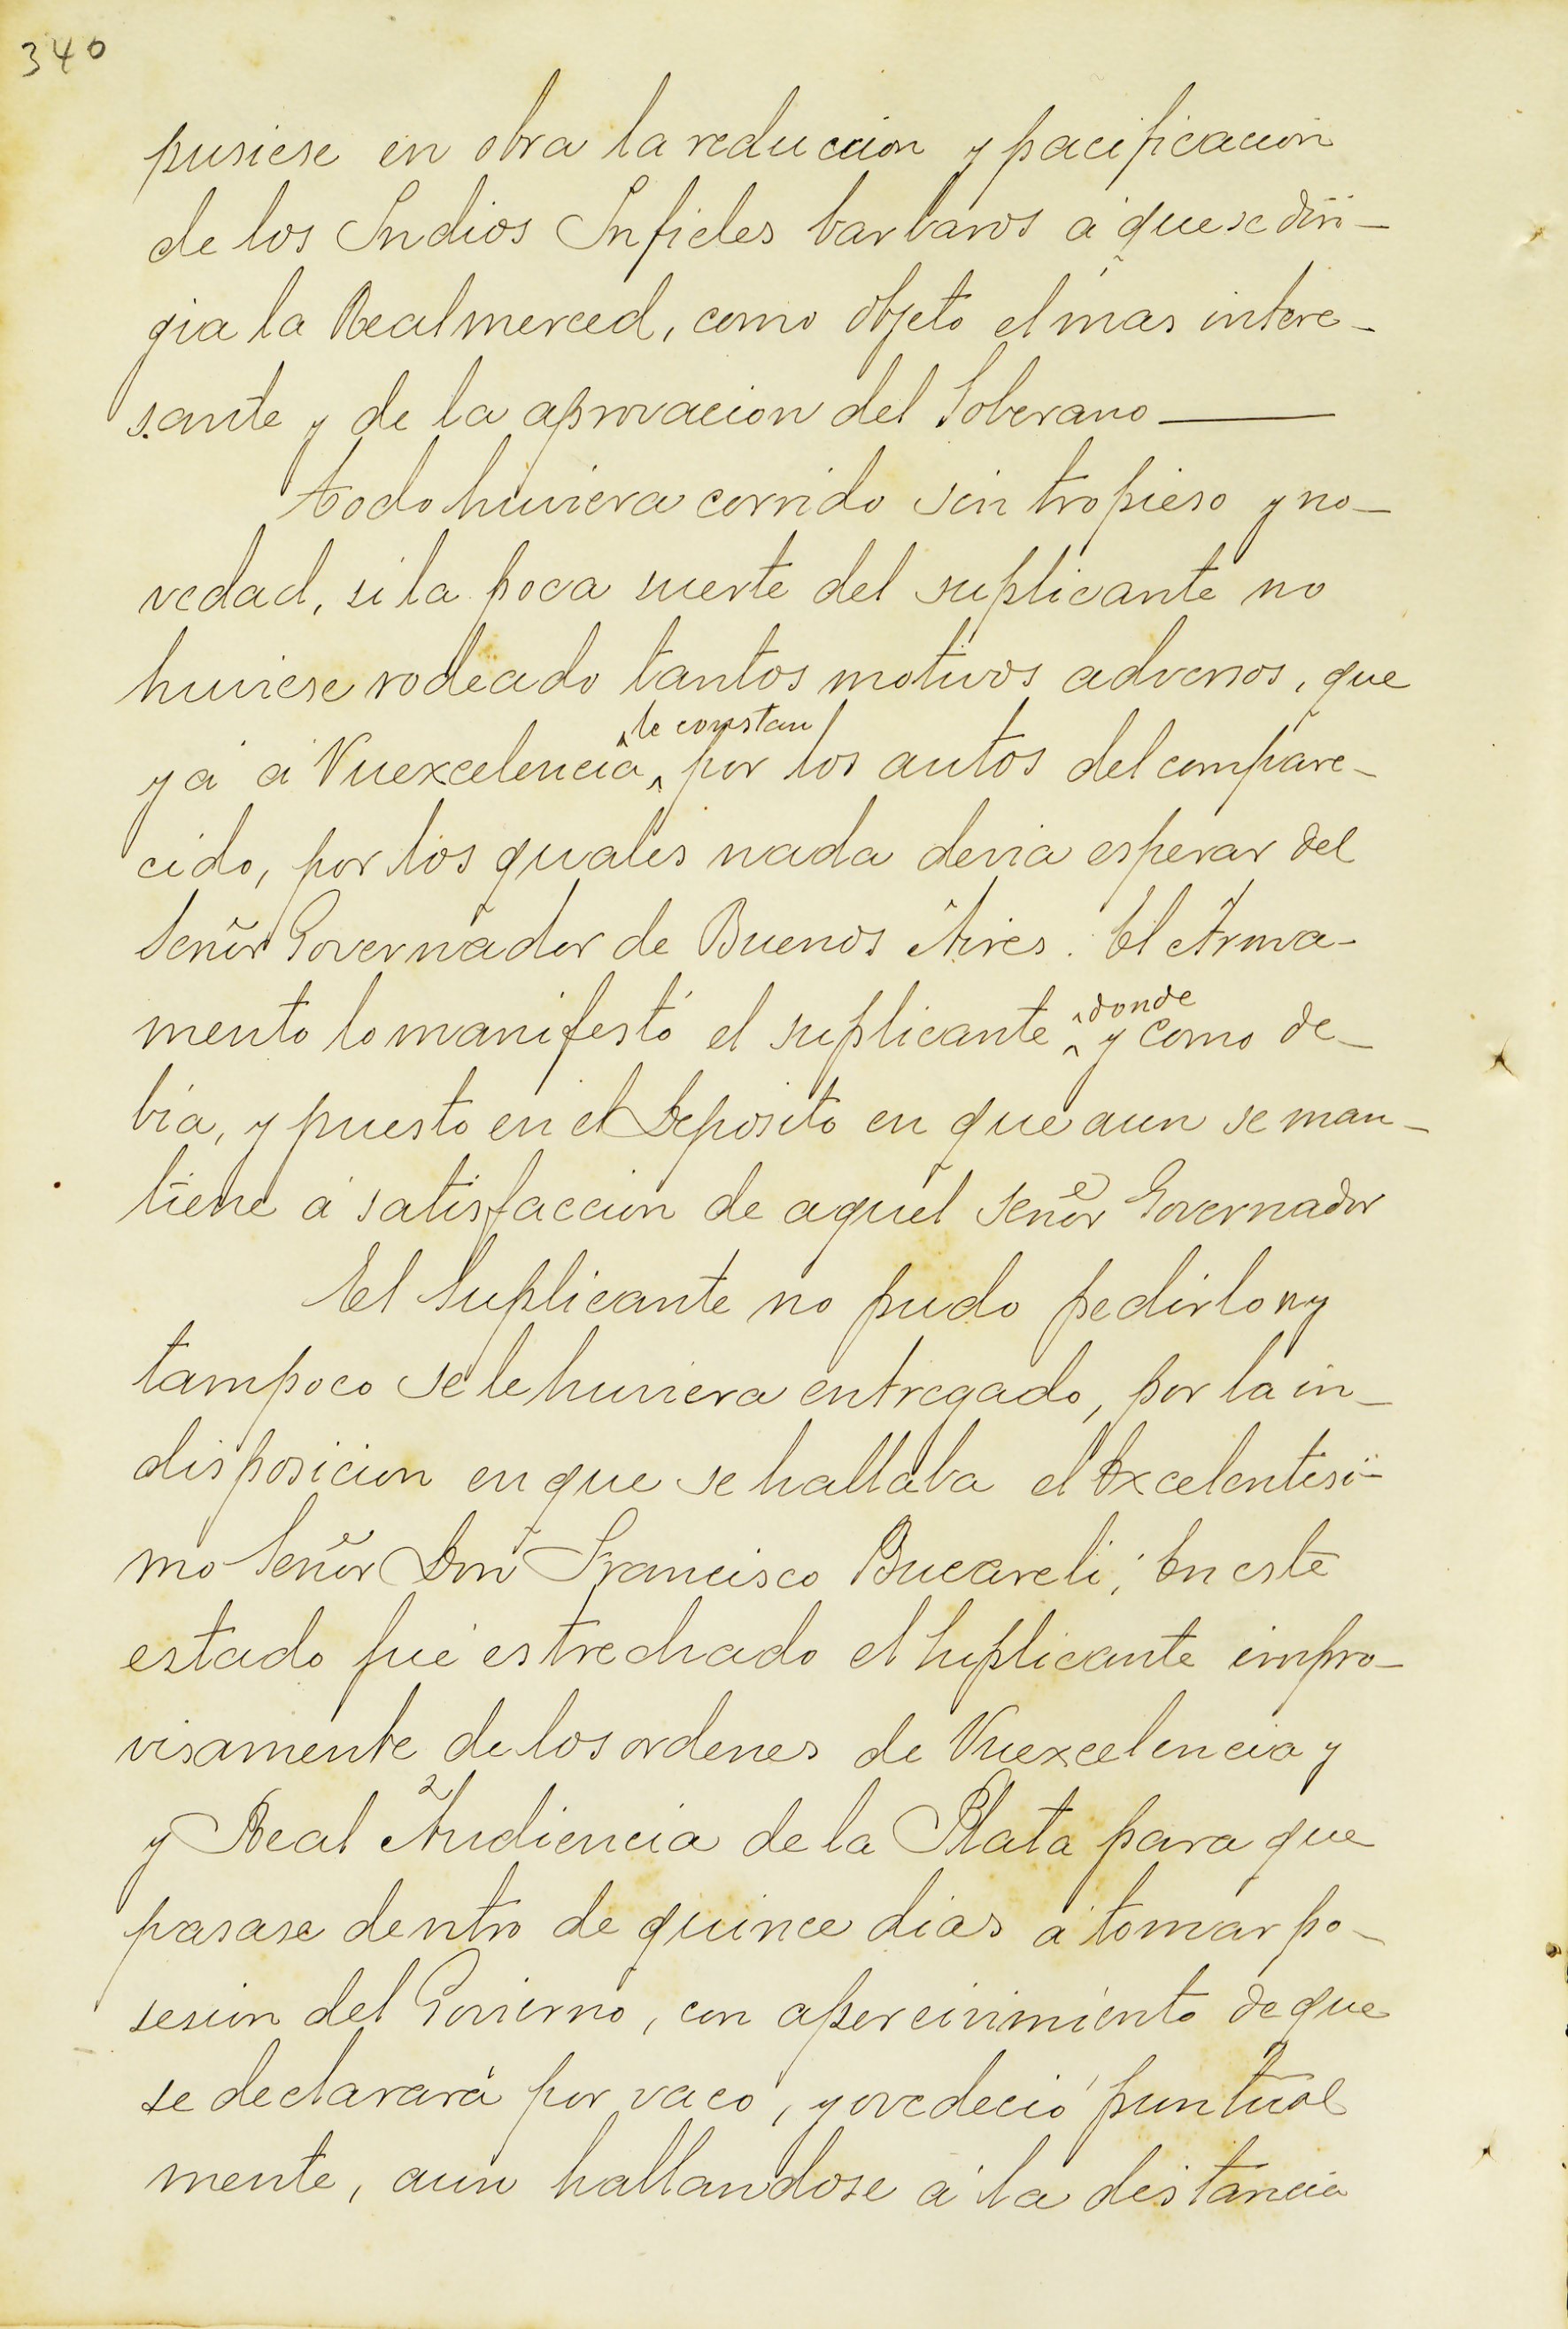 340
pusiese en obra la reduccion y pacificacion
de los Indios Infieles barbaros á que se diri-
gia la Real merced, como objeto el mas intere-
sante y de la aprovacion del Soberano —
Todo huviera corrido sin tropieso y no-
vedad, si la poca suerte del suplicante no
huviese rodeado tantos motivos adversos, que
ya á Vuexcelencia le constan por los autos del compare-
cido, por los quales nada devia esperar del
Señor Governador de Buenos Aires. El Arma-
mento lo manifestó el suplicante donde y como de-
bia, y puesto en el Deposito en que aun se man-
tiene á satisfaccion de aquel Señor Governador
El Suplicante no pudo pedirlo ny
tampoco se le huviera entregado, por la in-
disposicion en que se hallaba el Excelentisi-
mo Señor Don Francisco Bucareli; En este
estado fué estrechado el Suplicante impro-
visamente de los ordenes de Vuexcelencia y
y Real Audiencia de la Plata para que
pasase dentro de quince dias á tomar po-
sesion del Govierno, con apercivimiento de que
se declarará por vaco, y ovedeció puntual
mente, aun hallandose á la distancia